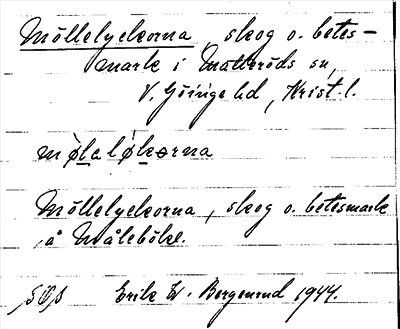 Möllelyckorna, skog o. betes-
mark i Matteröds sn,
V. Göinge hd, Krist. l.
mølaløkorna
Möllelyckorna, skog o. betesmark
å Målebökl.
Erik W. Bergenrud 1944.